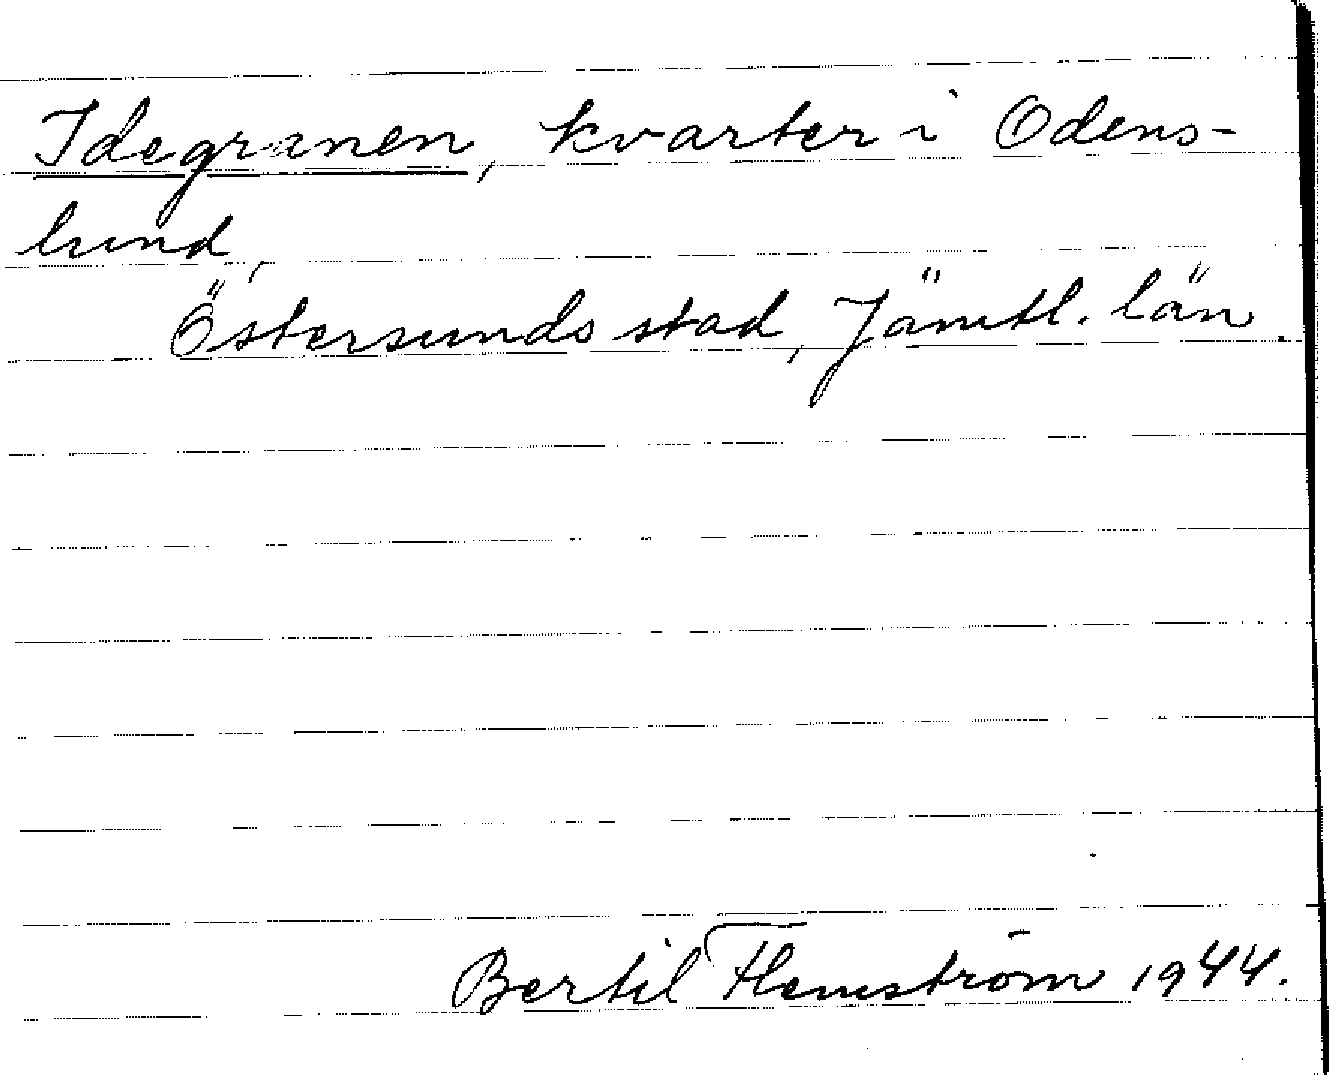 Idegranen, kvarter i Odens-
lund,
Östersunds stad, Jämtl. län.
Bertil Flemström 1944.